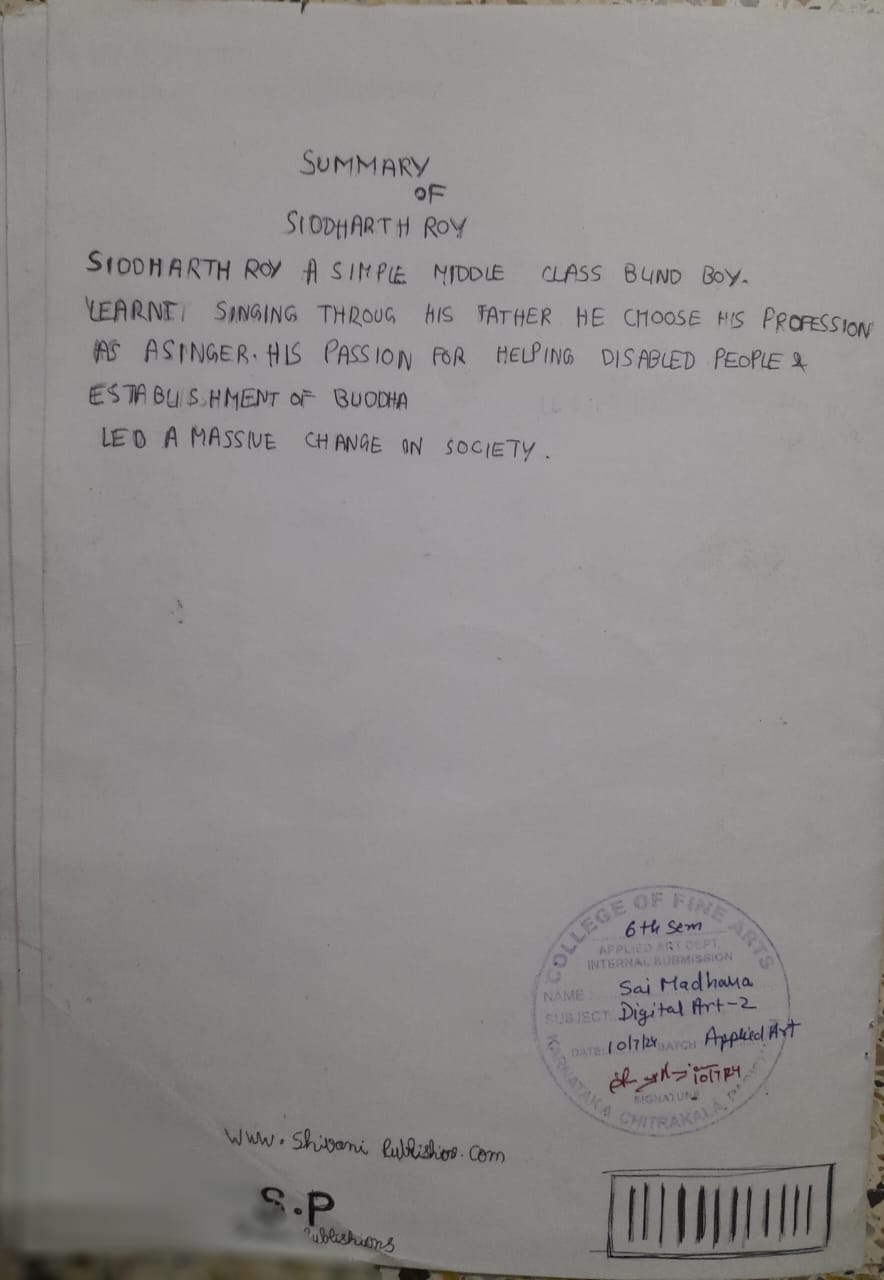 SUMMARY
OF
SIDDHARTH ROY
SIDDHARTH ROY A SIMPLE MIDDLE CLASS BLIND BOY.
LEARNT SINGING THROUG HIS FATHER HE CHOOSE HIS PROFESSION
AS A SINGER. HIS PASSION FOR HELPING DISABLED PEOPLE &
ESTABLISHMENT OF BUDDHA
LED A MASSIVE CHANGE ON SOCIETY.
COLLEGE OF FINE ARTS
6th Sem
APPLIED ART DEPT.
INTERNAL SUBMISSION
NAME: Sai Madhana
SUBJECT: Digital Art-2
DATE: 10/7/24 BATCH Applied Art
10/7/24
SIGNATURE
KARNATAKA CHITRAKALA
www.Shivani Publishios.com
S.P
Publishions